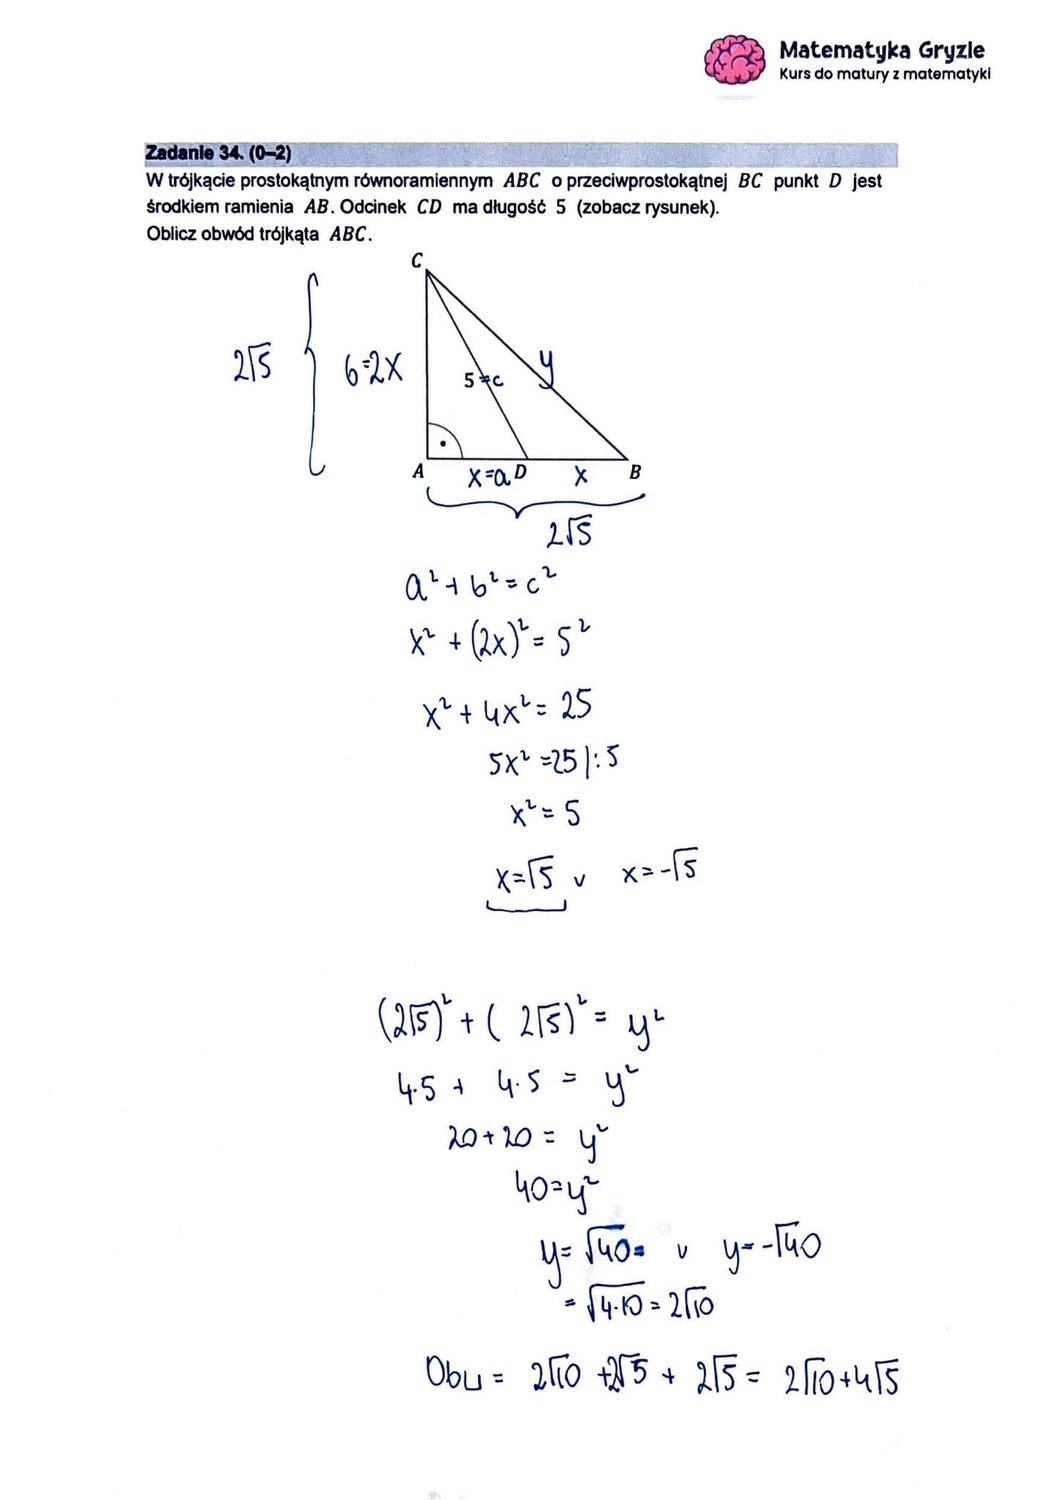 Matematyka Gryzie
Kurs do matury z matematyki
Zadanie 34. (0–2)
W trójkącie prostokątnym równoramiennym ABC o przeciwprostokątnej BC punkt D jest
środkiem ramienia AB. Odcinek CD ma długość 5 (zobacz rysunek).
Oblicz obwód trójkąta ABC.
C
2√5
b=2x
5=c
y
A
x=a
D
x
B
2√5
a²+b²=c²
x²+(2x)²=5²
x²+4x²=25
5x²=25|:5
x²=5
x=√5 v x=-√5
(2√5)²+(2√5)²=y²
4·5+4·5=y²
20+20=y²
40=y²
y=√40= v y=-√40
=√4·10=2√10
Obw=2√10+2√5+2√5=2√10+4√5